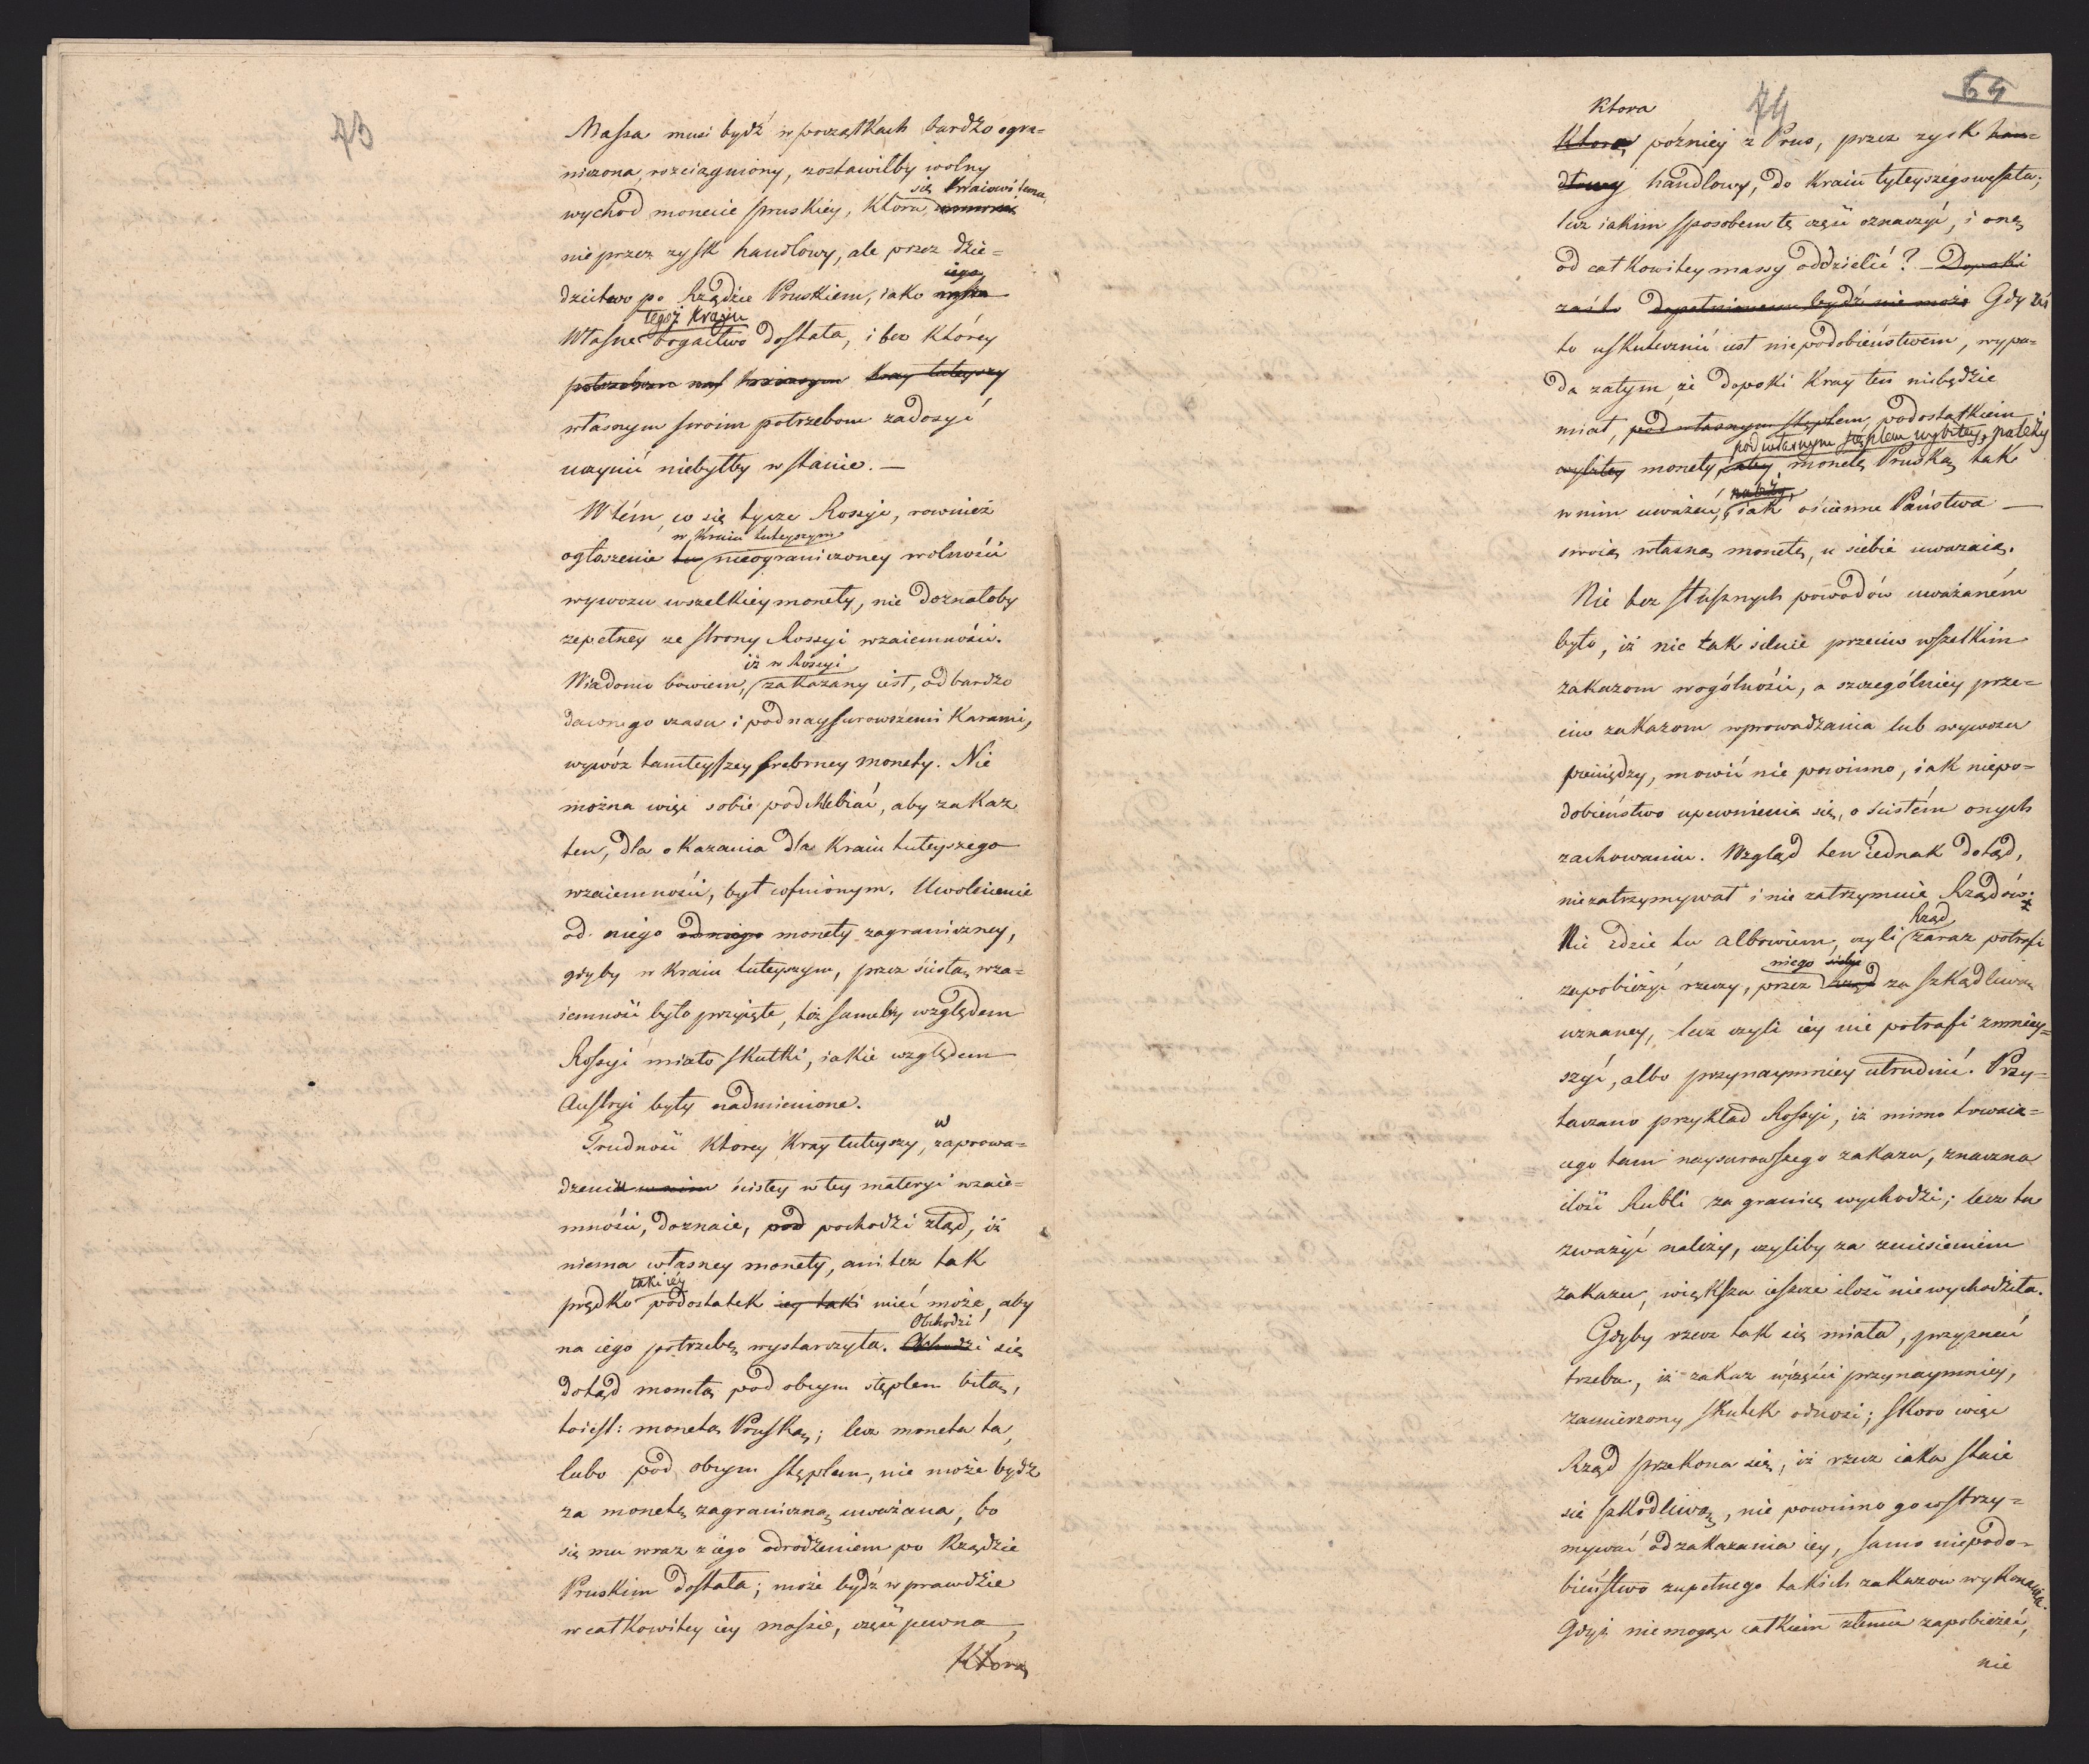 73
Massa musi bydź w początkach bardzo ogra=
niczona, rozciągniony, zostawiłby wolny
się kraiowi temu,
wychod monecie pruskiéy, która
nie przez zysk handlowy, ale przez dzie=
iego
dzictwo po Rządzie Pruskiem, iako
tegoż kraju
własne bogactwo dostała, i bez któréy
kray tuteyszy
własnym swoim potrzebom zadosyć
uczynić niebyłby w stanie. —
W tém, co się tycze Rossyi, rownież
w kraiu tuteyszym
ogłoszenie tu nieograniczoney wolności
wywozu wszelkiey monety, nie doznałoby
zepełney ze strony Rossyi wzaiemności.
iż w Rossyi
Wiadomo bowiem, zakazany iest, od bardzo
dawnego czasu i pod naysurowszemi karami,
wywóz tamteyszey srebrney monety. Nie
można więc sobie podchlebiać, aby zakaz
ten, dla okazania dla kraiu tuteyszego
wzaiemności, był cofnionym. Uwolnienie
od niego od niego monety zagraniczney,
gdyby w kraiu tuteyszym, przez ścisłą wza=
iemność było przyięte, też sameby względem
Rossyi miało skutki, iakie względem
Austryi były nadmienione.
w
Trudność ktorey kray tuteyszy, zaprowa=
dzeniu w nim ścisłey w tey materyi wzaie=
mności, doznaie, pod pochodzi ztąd, iż
niema własney monety, ani tez tak
taki iéy
prędko podostatek iey taki mieć może, aby
Obchodzi
na iego potrzebę wystarczyła. Obchodzi się
dotąd monetą pod obcym stęplem bitą,
toiest: monetą Pruską; lecz moneta ta,
lubo pod obcym stęplem, nie może bydź
za monetę zagraniczną uważana, bo
się mu wraz z iego odrodzeniem po Rządzie
Pruskim dostała; może bydź w prawdzie
w całkowitey iey massie, część pewna,
Którą
74
64
Ktora
Którą późniey z Prus, przez zysk han=
dlowy handlowy, do kraiu tyteyszego weszła;
lecz iakim sposobem tę część oznaczyć, i onę
od całkowitey massy oddzielić? — Dopóki
zaś to dopełnionem bydź nie może Gdy zaś
to uskutecznić iest niepodobieństwem, wypa=
da zatym, że dopoki Kray ten niebędzie
miał, pod własnym stęplem, podostatkiem
pod własnym stęplem wybitey, należy
wybitey monety, monetę Pruską tak
należy
w nim uważać, iak ościenne Państwa —
swoią własną monetę, u siebie uważaią.
Nie bez słusznych powodów uważaném
było, iż nic tak silnie przeciw wszelkim
zakazom wogólności, a szczególniey prze=
ciw zakazom wprowadzania lub wywozu
pieniędzy, mowić nie powinno, iak niepo=
dobieństwo upewnienia się, o ścisłém onych
zachowaniu. Wzgląd ten iednak dotąd,
niezatrzymywał i nie zatrzymuie Rządów:
Rząd
Nie idzie tu albowiem, czyli zaraz potrafi
niego
zapobieżyć rzeczy, przez Rząd za szkodliwą
uznaney, lecz czyli iey nie potrafi zmniey=
szyć, albo przynaymniey utrudnić. Przy=
taczano przykład Rossyi, iż mimo trwaią=
cego tam naysurowszego zakazu, znaczna
ilość Rubli za granicę wychodzi; lecz tu
zważyć należy, czyliby za zniesieniem
zakazu, większa ieszcze ilość niewychodziła.
Gdyby rzecz tak się miała, przyznać
trzeba, iż zakaz w części przynaymniey,
zamierzony skutek odnosi; skoro więc
Rząd przekona się, iż rzecz iaka staie
się szkodliwą, nie powinno go wstrzy=
mywać od zakazania iey, samo niepodo=
bieństwo zupełnego takich zakazow wykonania.
Gdyż niemogąc całkiem złemu zapobieżéć,
nie